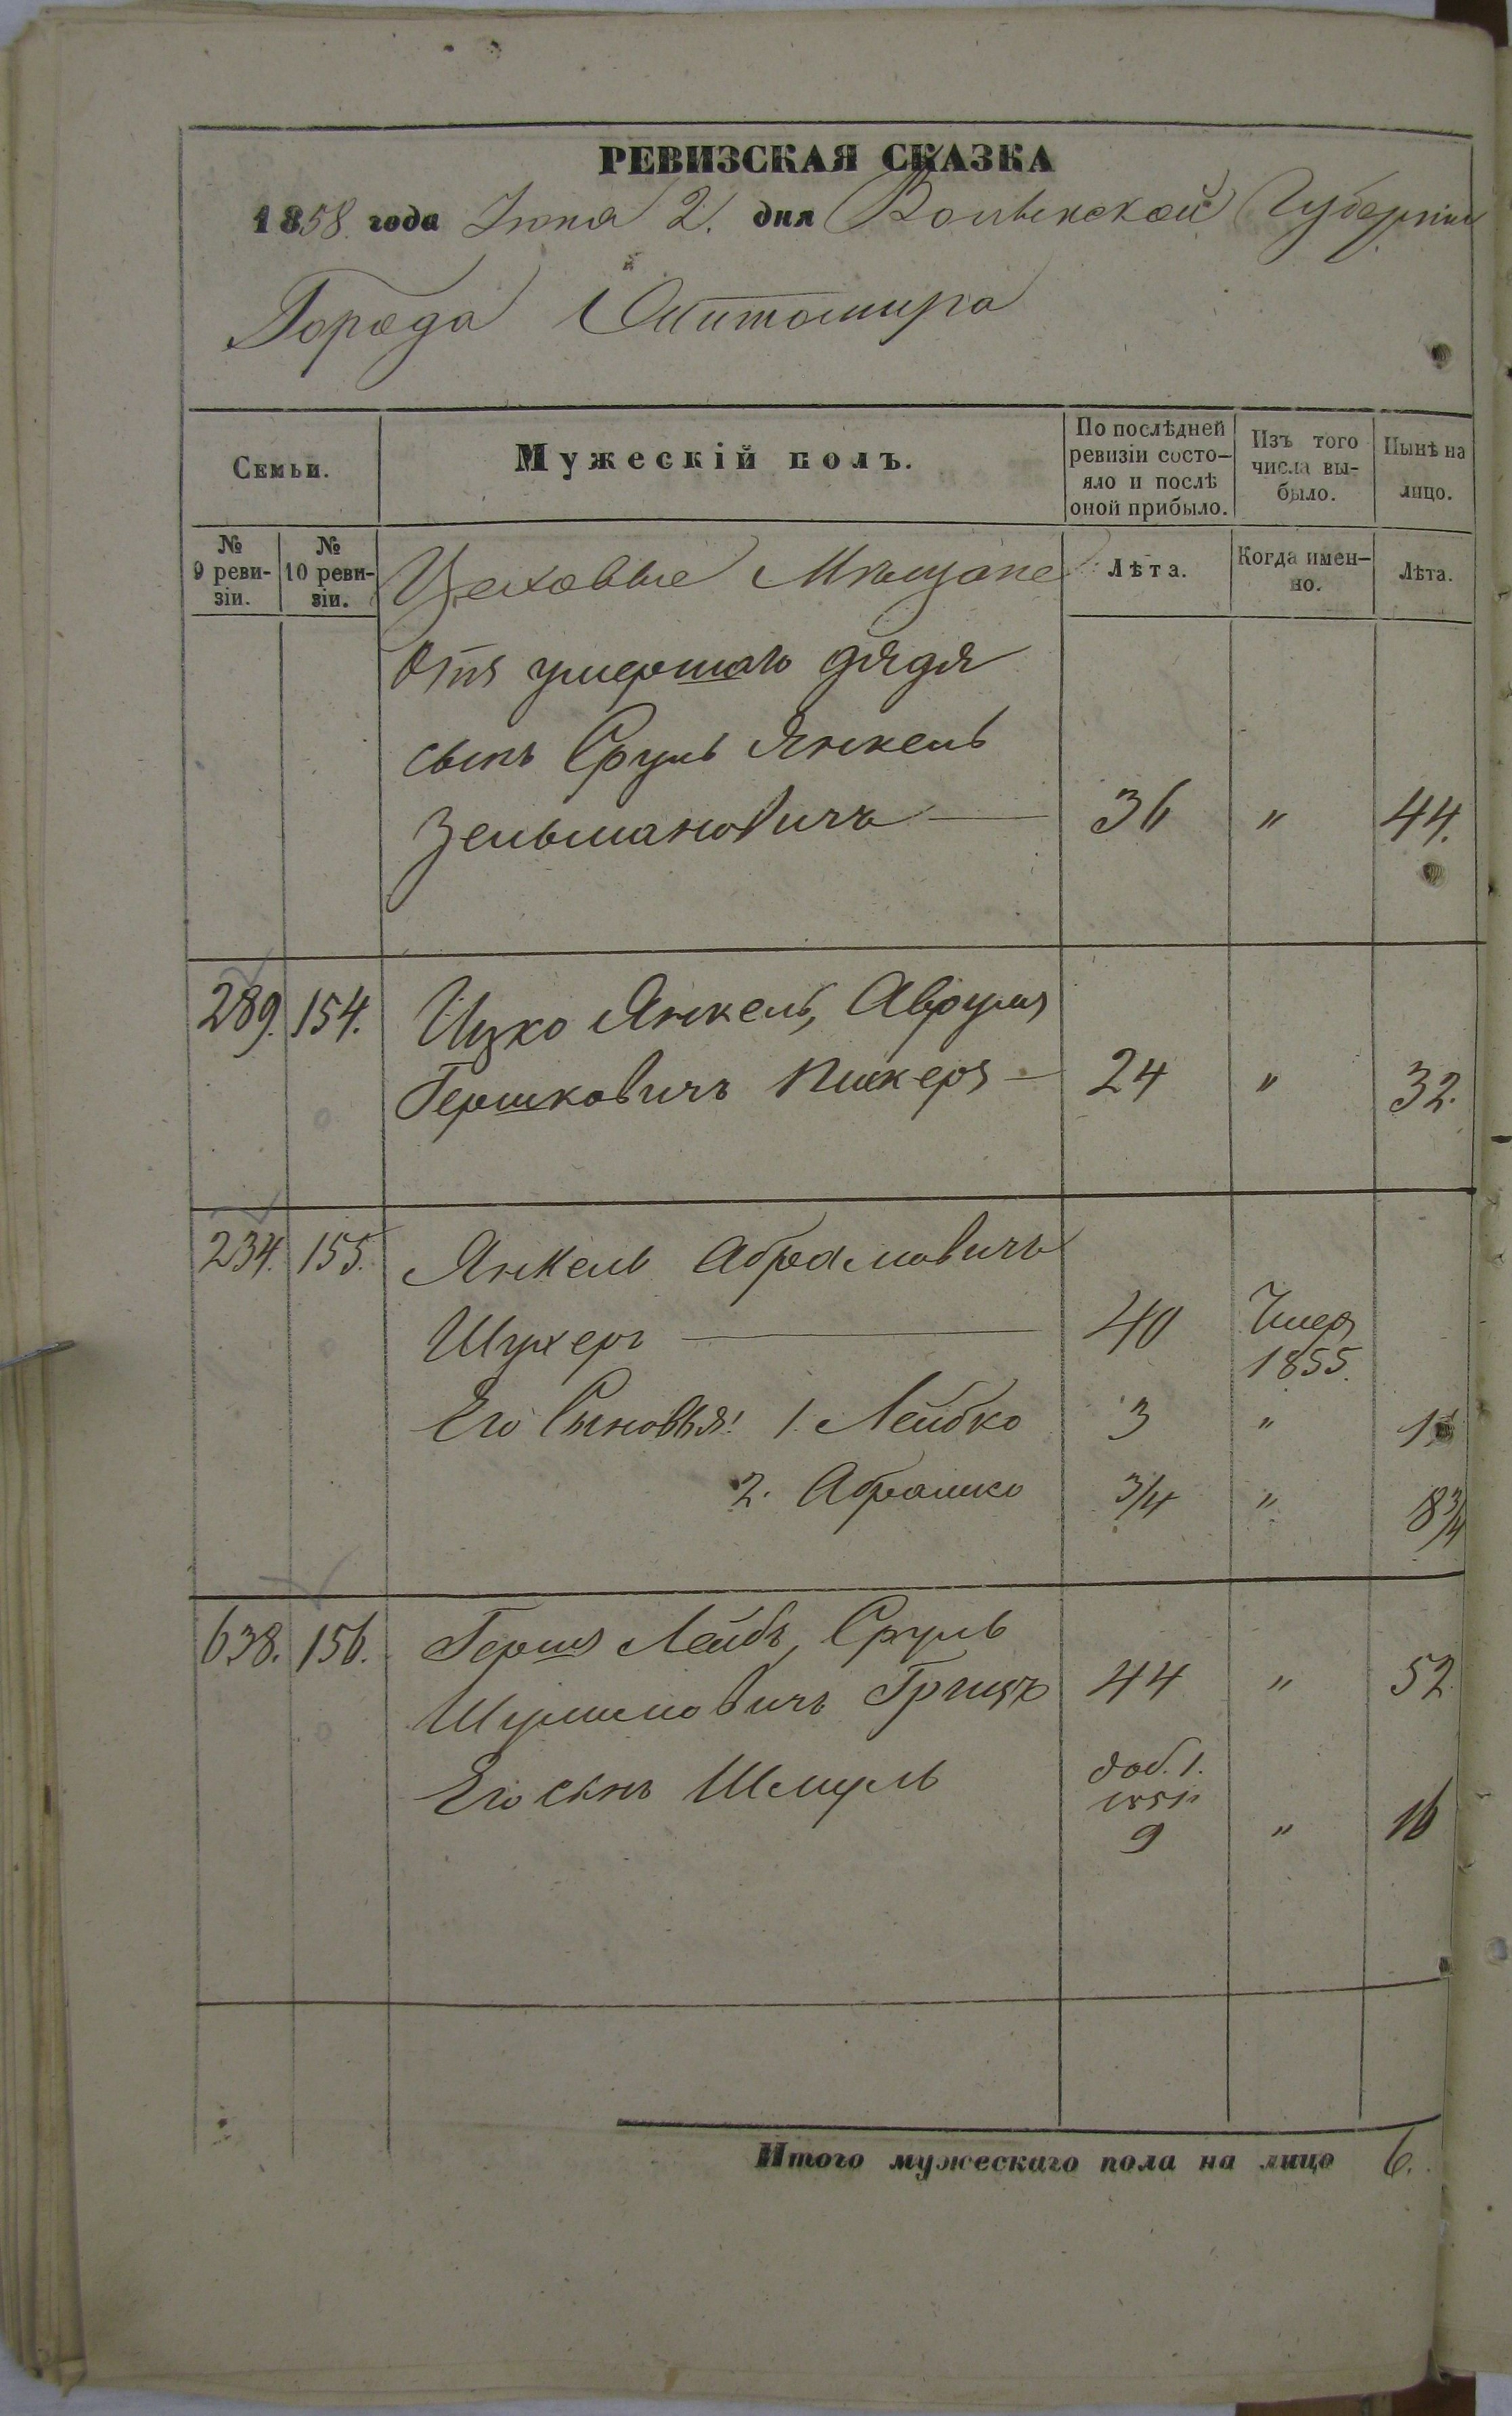 РЕВИЗСКАЯ СКАЗКА
1858 года Іюня 2. дня Волынской Губерніи
Города Житомира
Семьи.
Мужескій полъ.
По послѣдней ревизіи состо-
яло и послѣ
оной прибыло.
Изъ того
числа вы-
было.
Нынѣ на
лицо.
№ 9 реви-
зіи.
№ 10 реви-
зіи.
Цеховые Мѣщане
Лѣта.
Когда имен-
но.
Лѣта.
дядя
сынъ Сруль Янкель
Зельмановичъ — 36 " 44.
289. 154. Ицко Янкель, Аврумъ
Гершковичъ — 24 " 32.
234. 155. Янкель Абрамовичъ
Шухеръ — 40 Умеръ
1855.
Его Сыновья: 1. Лейбко 3 "
2. Абрашко 3/4 " 8 3/4
638. 156. Гершъ Лейбъ, Сруль
44 " 52
Его сынъ Шмуль доб. 1.
9 " 16
Итого мужескаго пола на лицо 6.